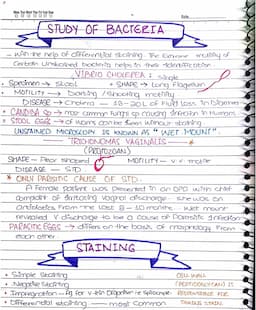 Date
STUDY OF BACTERIA
- With the help of differential staining the Extreme motility of
certain unstained bacteria helps in their identification.
VIBRIO CHOLERAE: Single
• Specimen → Stool • SHAPE → Long Flagellum
• MOTILITY → Darting / Shooting motility
DISEASE → Cholera - 18-20L of fluid loss in diarrhea
• CANDIDA sp → most common fungus sp causing infection in humans
• STOOL EGGS → of worms can be seen without staining
UNSTAINED MICROSCOPY IS KNOWN AS "WET MOUNT"
TRICHOMONAS VAGINALIS
(PROTOZOAN)
SHAPE - Pear shaped MOTILITY -
DISEASE - STD
* ONLY PARASITIC CAUSE OF STD
A Female patient was presented in an OPD with chief
complaint of Satiating vaginal discharge. She was on
antibiotics from the last 8-10 months. Wet mount
revealed V discharge to be a cause of Parasitic infection
PARASITIC EGGS → differs on the basis of morphology from
each other.
STAINING
• Simple Staining CELL WALL
• Negative Staining (PEPTIDOGLYCAN) IS
• Impregnation - Ag for v. thin organism ie spirochete RESPONSIBLE FOR
• Differential staining → most common